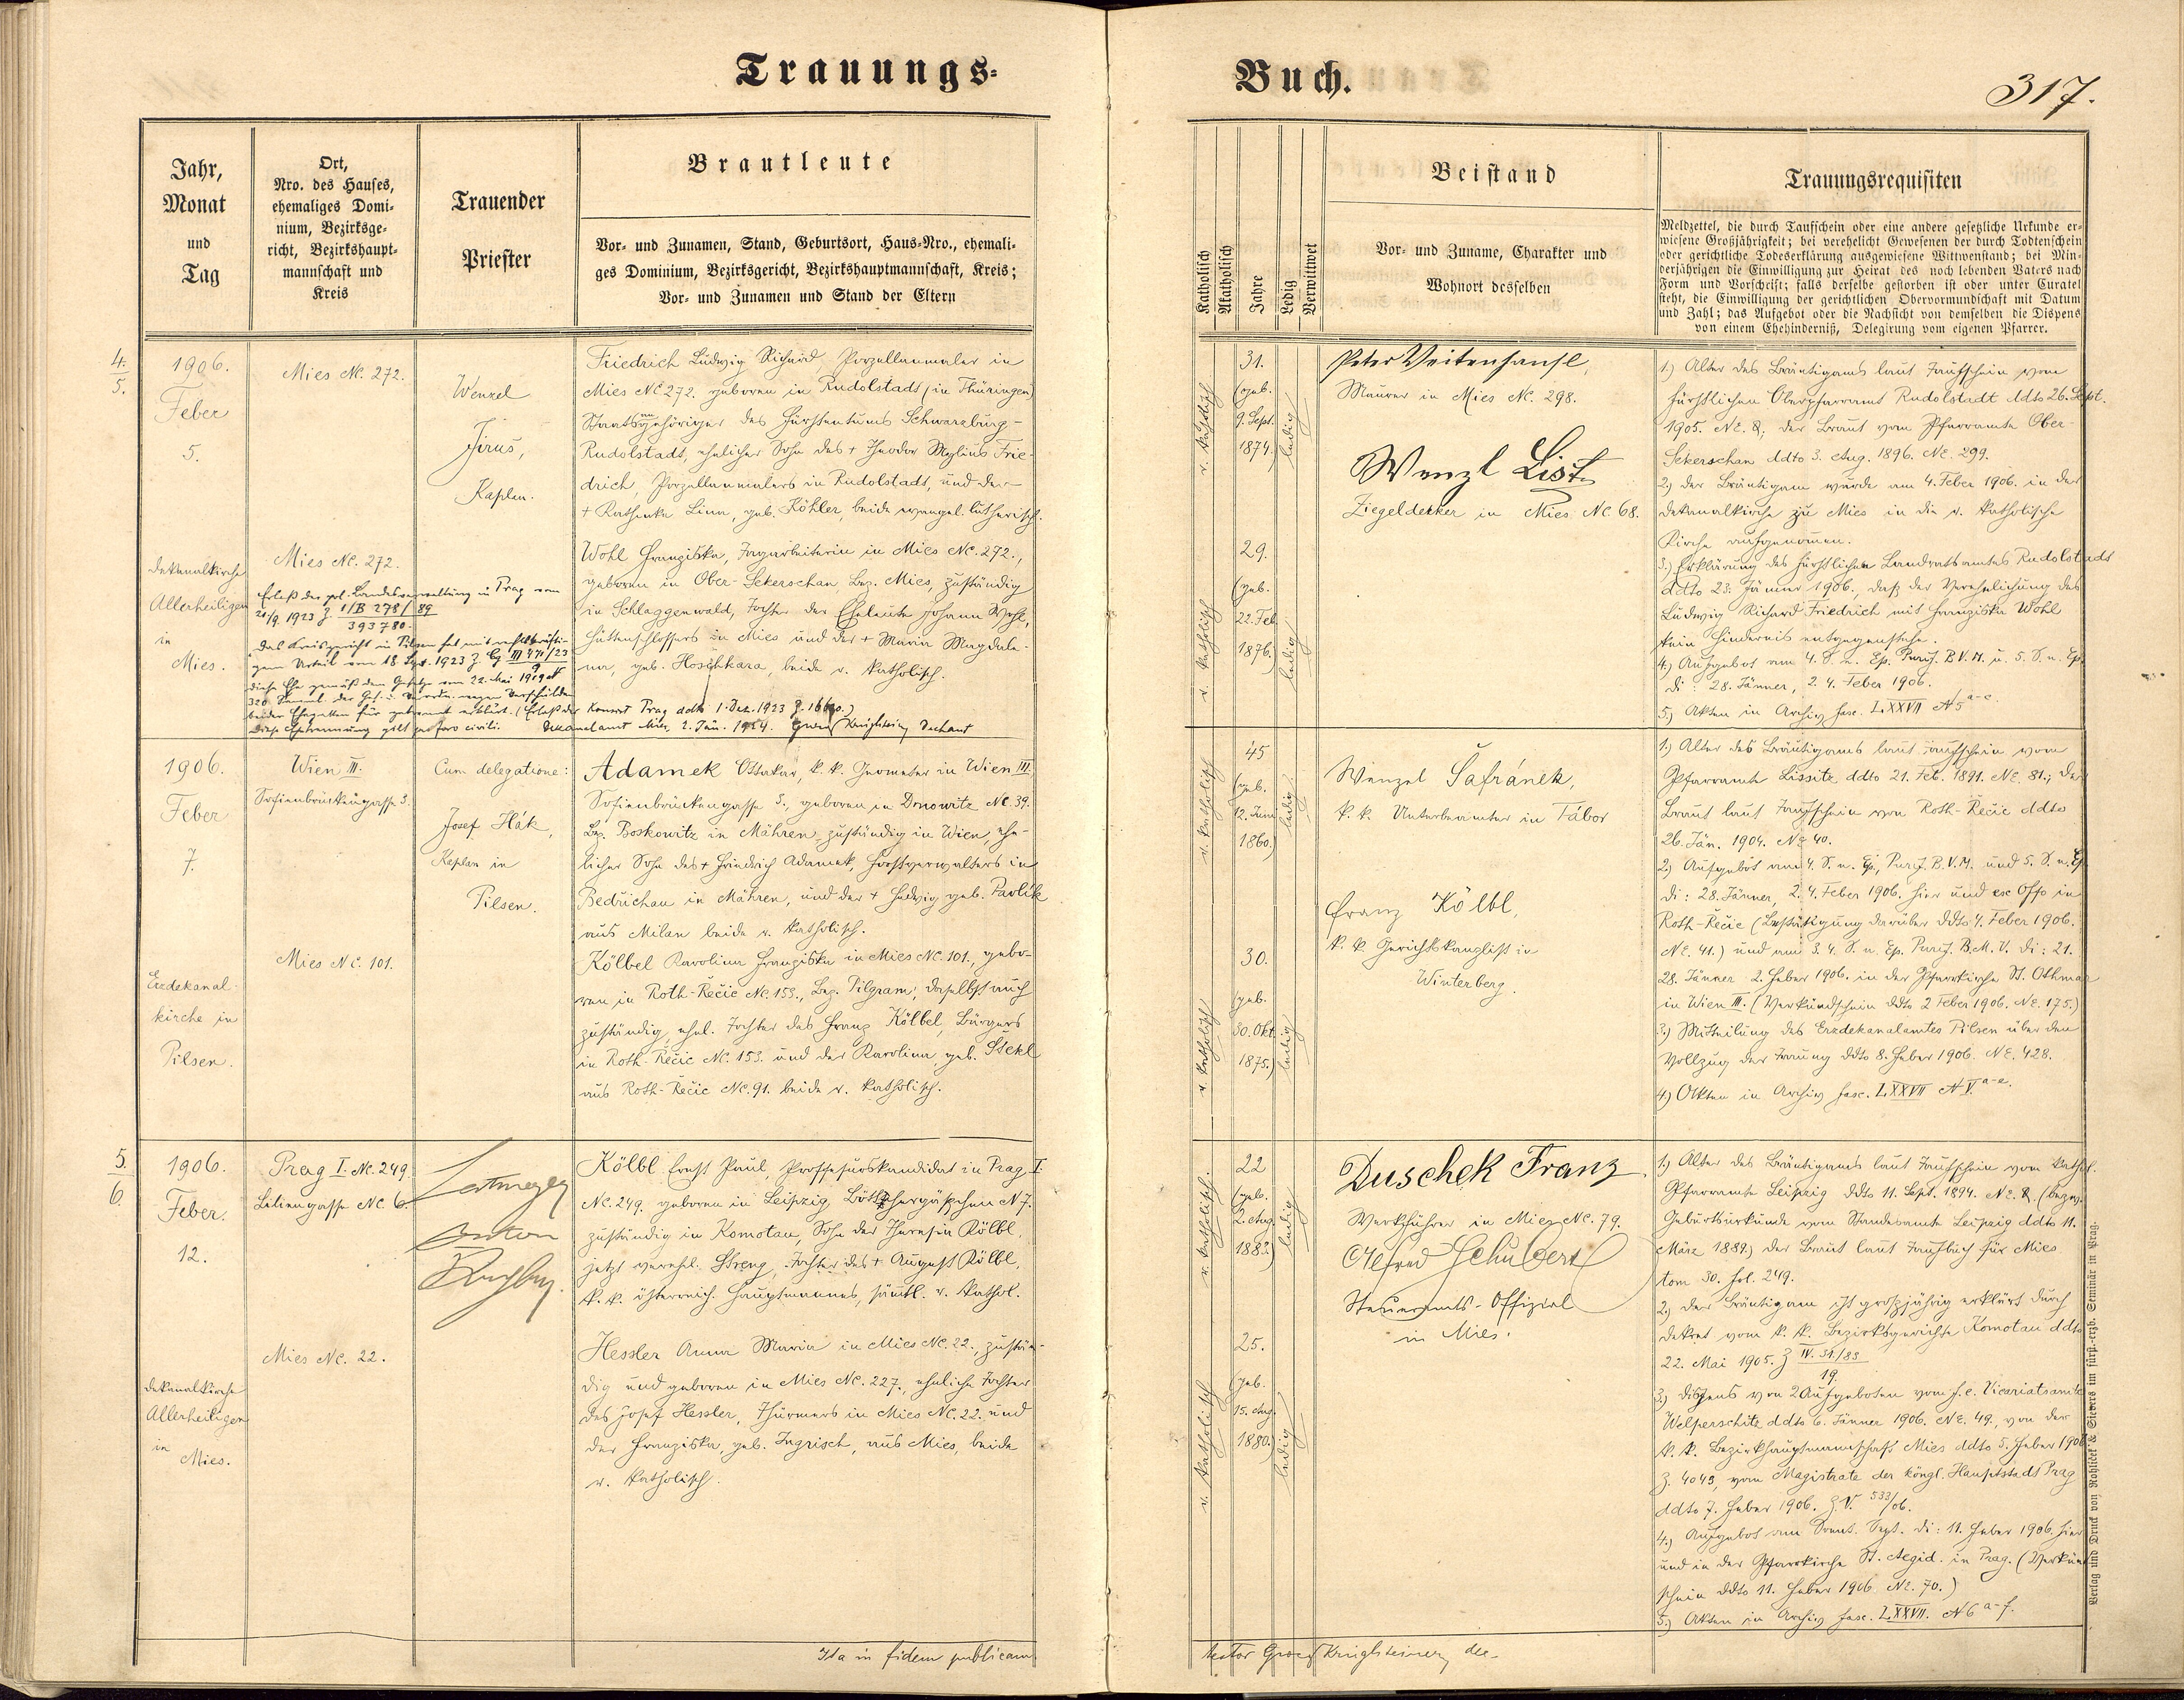 Trauungs-
Buch.
317.
Jahr,
Monat
und
Tag
Ort,
Nro. des Hauses,
ehemaliges Domi-
nium, Bezirksge-
richt, Bezirkshaupt-
mannschaft und
Kreis
Trauender
Priester
Brautleute
Vor- und Zunamen, Stand, Geburtsort, Haus-Nro., ehemali-
ges Dominium, Bezirksgericht, Bezirkshauptmannschaft, Kreis;
Vor- und Zunamen und Stand der Eltern
Katholisch
Akatholisch
Jahre
Ledig
Verwittwet
Beistand
Vor- und Zuname, Charakter und
Wohnort desselben
Trauungsrequisiten
Meldzettel, die durch Taufschein oder eine andere gesetzliche Urkunde er-
wiesene Großjährigkeit; bei verehelicht Gewesenen der durch Todtenschein
oder gerichtliche Todeserklärung ausgewiesene Wittwenstand; bei Min-
derjährigen die Einwilligung zur Heirat des noch lebenden Vaters nach
Form und Vorschrift; falls derselbe gestorben ist oder unter Curatel
steht, die Einwilligung der gerichtlichen Obervormundschaft mit Datum
und Zahl; das Aufgebot oder die Nachsicht von demselben die Dispens
von einem Ehehinderniß, Delegirung vom eigenen Pfarrer.
4.
5.
1906.
Feber
5.
Dekanalkirche
Allerheiligen
in
Mies.
Mies Nc. 272.
Mies Nc. 272.
Erlaß der pol. Landesverwaltung in Prag vom
20/9. 1923 Z. 1/B 278/89
393780.
Das Kreisgericht in Pilsen hat mit rechtskräfti-
gem Urteil vom 18 Sept. 1923 Z. Cg III 471/23
9
diese Ehe gemäß dem Gesetze vom 22. Mai 1919 N
320 Samml. der Ges. u. Verordn. wegen Verschulden
beider Ehegatten für getrennt erklärt. (Erlaß der Konsist Prag ddto 1. Dez. 1923 Z. 16600.)
Diese Ehetrennung gilt pro foro civili. Dekanalamt Mies, 2. Jän. 1924. Georg Krieglsteiner Dechant
Wenzel
Jirus,
Kaplan.
Friedrich Ludwig Richard, Porzellanmaler in
Mies Nc 272. geboren in Rudolstadt (in Thüringen)
Staatsangehöriger des Fürstentums Schwarzburg-
Rudolstadt, ehelicher Sohn des + Theodor Mylius Frie-
drich, Porzellanmalers in Rudolstadt, und der
+ Kathinka Lina, geb. Köhler beide evangel. lutherisch.
Wohl Franziska, Tagarbeiterin in Mies Nc. 272.,
geboren in Ober-Sekerschan, Bez. Mies, zuständig
in Schlaggenwald, Tochter der Eheleute Johann Wohl,
Hüttenschlossers in Mies und der + Maria Magdale-
na, geb. Hoschkara, beide r. katholisch.
r. katholisch
31.
(geb.
9. Sept.
1874.)
ledig
r. katholisch
29.
(geb.
22. Feb.
1876.)
ledig
Peter Veitenhansl,
Maurer in Mies Nc. 298.
Wenzl List
Ziegeldecker in Mies Nc. 68.
1.) Alter des Bräutigams laut Taufschein vom
fürstlichen Oberpfarramt Rudolstadt ddto 26. Sept.
1905. NE. &; der Braut vom Pfarramte Ober-
Sekerschan ddto 3. Aug. 1896. NE. 299.
2.) Der Bräutigam wurde am 4. Feber 1906. in der
Dekanalkirche zu Mies in die r. katholische
Kirche aufgenommen.
3.) Erklärung des fürstlichen Landratsamtes Rudolstadt
ddto 23. Jänner 1906., daß der Verehelichung des
Ludwig Richard Friedrich mit Franziska Wohl
kein Hindernis entgegenstehe.
4.) Aufgebot am 4. S. n. Ep. Purif. B.V.M. u. 5. S. n. Ep.
di: 28. Jänner, 2. 4. Feber 1906.
5.) Akten in Archiv fasc. LXXVII N 5 a-c.
1906.
Feber
7.
Erzdekanal-
kirche in
Pilsen.
Wien III.
Sofienbrückengasse 3.
Mies Nc. 101.
Cum delegatione:
Josef Hák,
Kaplan in
Pilsen.
Adamek Ottokar, k. k. Geometer in Wien III.
Sofienbrückengasse 3., geboren in Drnowitz Nc. 39.
Bez. Boskowitz in Mähren, zuständig in Wien, ehe-
licher Sohn des + Friedrich Adamek, Forstverwalters in
Bedřichau in Mähren, und der + Hedwig geb. Pavlík
aus Milau beide r. katholisch.
Kölbel Karolina Franziska in Mies Nc. 101., gebo-
ren in Roth-Řečic Nc. 153., Bez. Pilgram, daselbst auch
zuständig, ehel. Tochter des Franz Kölbel, Bürgers
in Roth-Řečic Nc. 153. und der Karolina, geb. Stekl
aus Roth-Řečic Nc. 91. beide r. katholisch.
r. katholisch
45
(geb.
12. Juni
1860.)
ledig
r. katholisch
30.
(geb.
30. Okt.
1875.)
ledig
Wenzel Šafránek,
k. k. Unterbeamter in Tábor
Franz Kölbl,
k. k. Gerichtskanzlist in
Winterberg.
1.) Alter des Bräutigams laut Taufschein vom
Pfarramte Lissitz ddto 21. Feb. 1891. NE. 81.; der
Braut laut Taufschein von Roth-Řečic ddto
26. Jän. 1904. NE 40.
2.) Aufgebot am 4. S. n. Ep., Purif. B.V.M. und 5. S. n. Ep.
di: 28. Jänner, 2. 4. Feber 1906. hier und ex Offo in
Roth-Řečic (Bestätigung darüber ddto 4. Feber 1906.
NE. 41.) und am 3. 4. S. n. Ep. Purif. B.M.V. di: 21.
28. Jänner 2. Feber 1906. in der Pfarrkirche St. Othmar
in Wien III. (Verkündschein ddto 2 Feber 1906. NE. 175.)
3.) Mitteilung des Erzdekanalamtes Pilsen über den
Vollzug der Trauung ddto 8. Feber 1906. NE. 428.
4.) Akten in Archiv fasc. LXXVII N V. a-e.
5.
6.
1906.
Feber.
12.
Dekanalkirche
Allerheiligen
in
Mies.
Prag I. Nc. 249.
Liliengasse Nc. 6.
Mies Nc. 22.
Anton
Kölbl Ernst Paul, Professurskandidat in Prag I.
Nc. 249. geboren in Leipzig, Böttchergäßchen N 7.
zuständig in Komotau, Sohn der Theresia Kölbl,
jetzt verehel. Streng, Tochter des + August Kölbl,
k. k. österreich. Hauptmannes, sämtl. r. kathol.
Hessler Anna Maria in Mies Nc. 22., zustän-
dig und geboren in Mies Nc. 227., eheliche Tochter
des Josef Hessler, Thürmers in Mies Nc. 22. und
der Franziska, geb. Ingrisch, aus Mies, beide
r. katholisch.
r. katholisch.
22
(geb.
2. Aug.
1883.)
ledig
r. katholisch
25.
(geb.
15. Aug.
1880.)
ledig
Duschek Franz
Werkführer in Mies Nc. 79.
Alfred Schubert
Steueramts-Offizial
in Mies.
1.) Alter des Bräutigams laut Taufschein vom kathol.
Pfarramte Leipzig ddto 11. Sept. 1894. NE. &. (bezw.
Geburtsurkunde vom Standesamte Leipzig ddto 11.
März 1889.) der Braut laut Taufbuch für Mies
tom 30. fol. 249.
2.) Der Bräutigam ist großjährig erklärt durch
Dekret vom k. k. Bezirksgerichte Komotau ddto
22. Mai 1905. Z IV. 31./83
19.
3.) Dispens von 2 Aufgeboten vom f. e. Vicariatsamte
Welperschitz ddto 6. Jänner 1906. NE. 49., von der
k. k. Bezirkshauptmannschaft Mies ddto 5. Feber 1906
Z. 4043, vom Magistrate der köngl. Hauptstadt Prag
ddto 7. Feber 1906. Z. V. 533/06.
4.) Aufgebot am Sonnt. Sept. di: 11. Feber 1906. hier
und in der Pfarrkirche St. Aegid. in Prag. (Verkün
schein ddto 11. Feber 1906. NE. 70.)
5.) Akten in Archiv fasc. LXXVII. N 6 a-f.
Ita in fidem publicam
testor Georg Krieglsteiner, dec.
Verlag und Druck von Rohliček & Sievers im fürst.-erzb. Seminär in Prag.